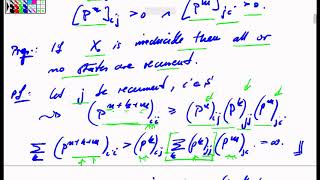 [P^n]_{ij} > 0 ∧ [P^m]_{ji} > 0.
Prop.: If X_n is irreducible then all or
no states are recurrent.
Pf: Let j be recurrent, i∈S
⇝ (P^{n+k+m})_{ii} ≥ (P^n)_{ij} (P^k)_{jj} (P^m)_{ji}
∑_k (P^{n+k+m})_{ii} ≥ (P^n)_{ij} [∑_k (P^k)_{jj}] (P^m)_{ji} = ∞.